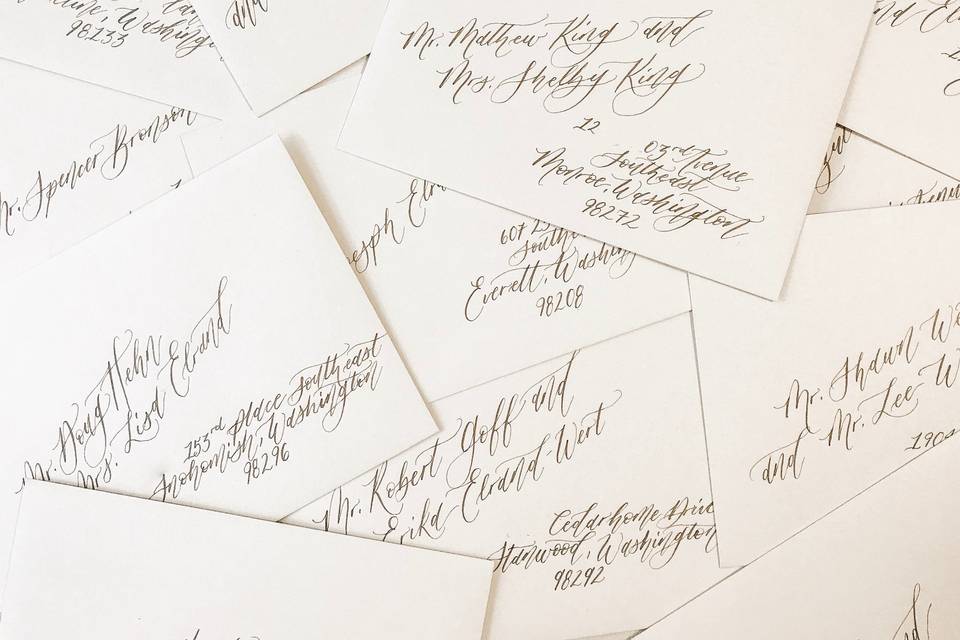 Washington
98233
and
Mr. Mathew King and
Mrs. Shelby King
12
03rd Avenue
Southeast
Monroe, Washington
98272
Mr. Spencer Bronson
607
Everett, Washing
98208
Mr. Doug Hehn
Mrs. Lisa Elrand
153rd place Southeast
Snohomish, Washington
98296
Mr. Robert Goff and
Erika Elrand-Wert
Cedarhome Drive
Stanwood, Washington
98292
Mr. Shawn
and Mr. Lee